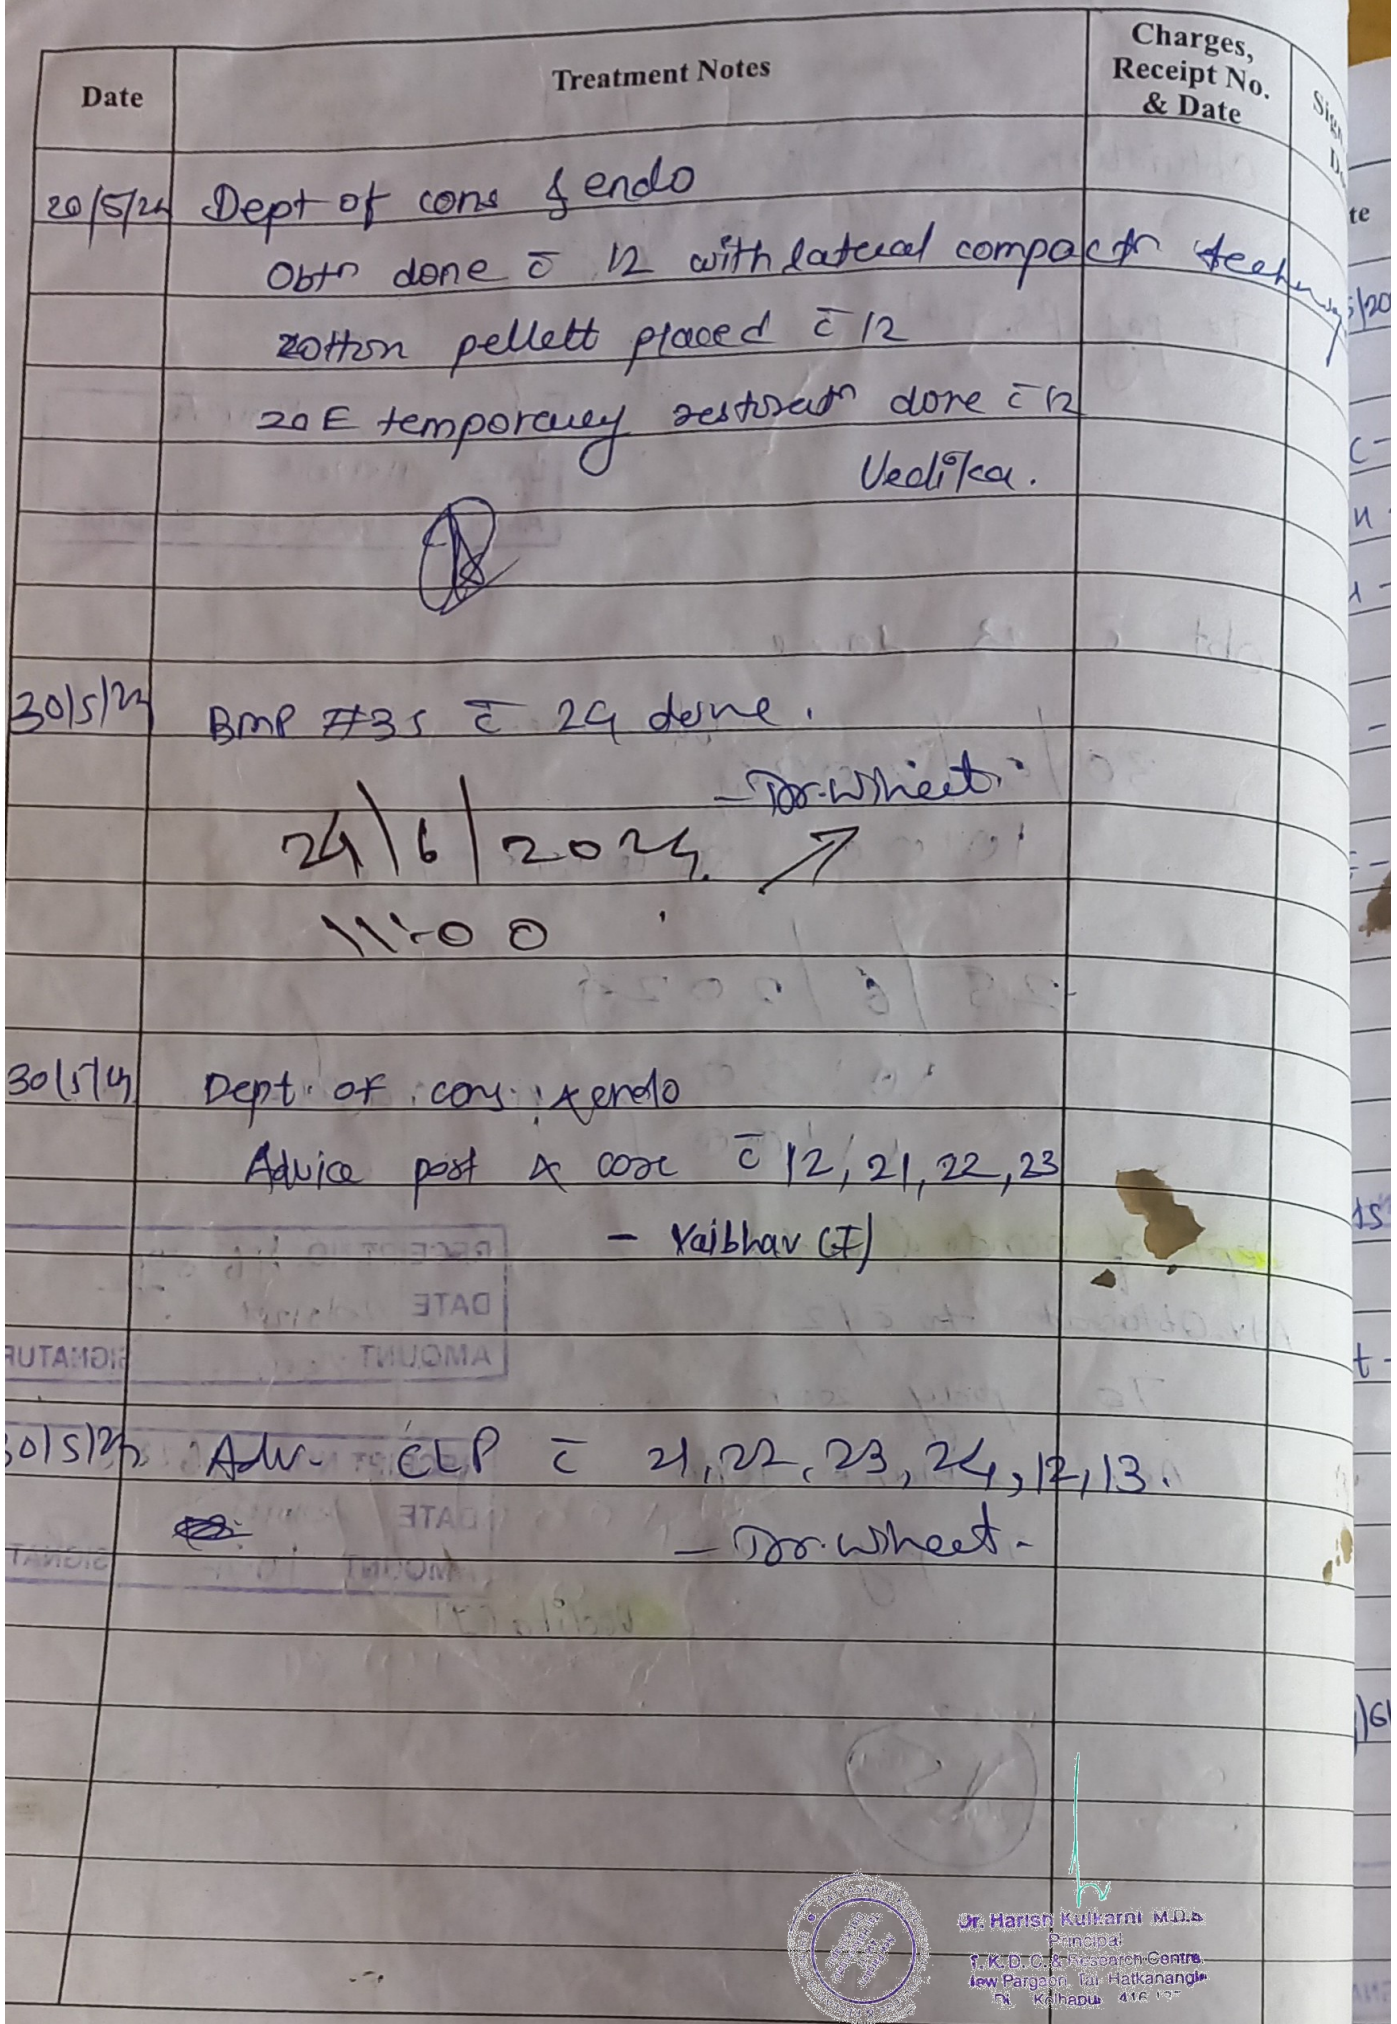 Date
Treatment Notes
Charges,
Receipt No.
& Date
20/5/24 Dept of cons & endo
Obtn done c̄ 12 with lateral compactn
cotton pellett placed c̄ 12
ZOE temporary restoratn done c̄ 12
Vedika.
30/5/24 BMP #35 c̄ 24 done.
24/6/2024
11:00
30/5/24 Dept. of cons & endo
Advice post & core c̄ 12, 21, 22, 23
- Vaibhav (I)
30/5/24 Adv. CLP c̄ 21, 22, 23, 24, 12, 13.
Dr. Harish Kulkarni M.D.S
Principal
T. K. D. C. & Research Centre
New Pargaon, Tal. Hatkanangle
Kolhapur